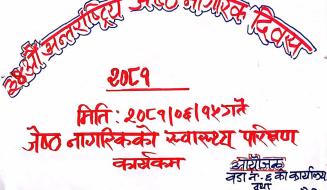 ३४औँ अन्तर्राष्ट्रिय जेष्ठ नागरिक दिवस
२०८१
मिति : २०८१/०६/१५ गते
जेष्ठ नागरिकको स्वास्थ्य परिक्षण
कार्यक्रम
आयोजक
वडा नं.-६ को कार्यालय